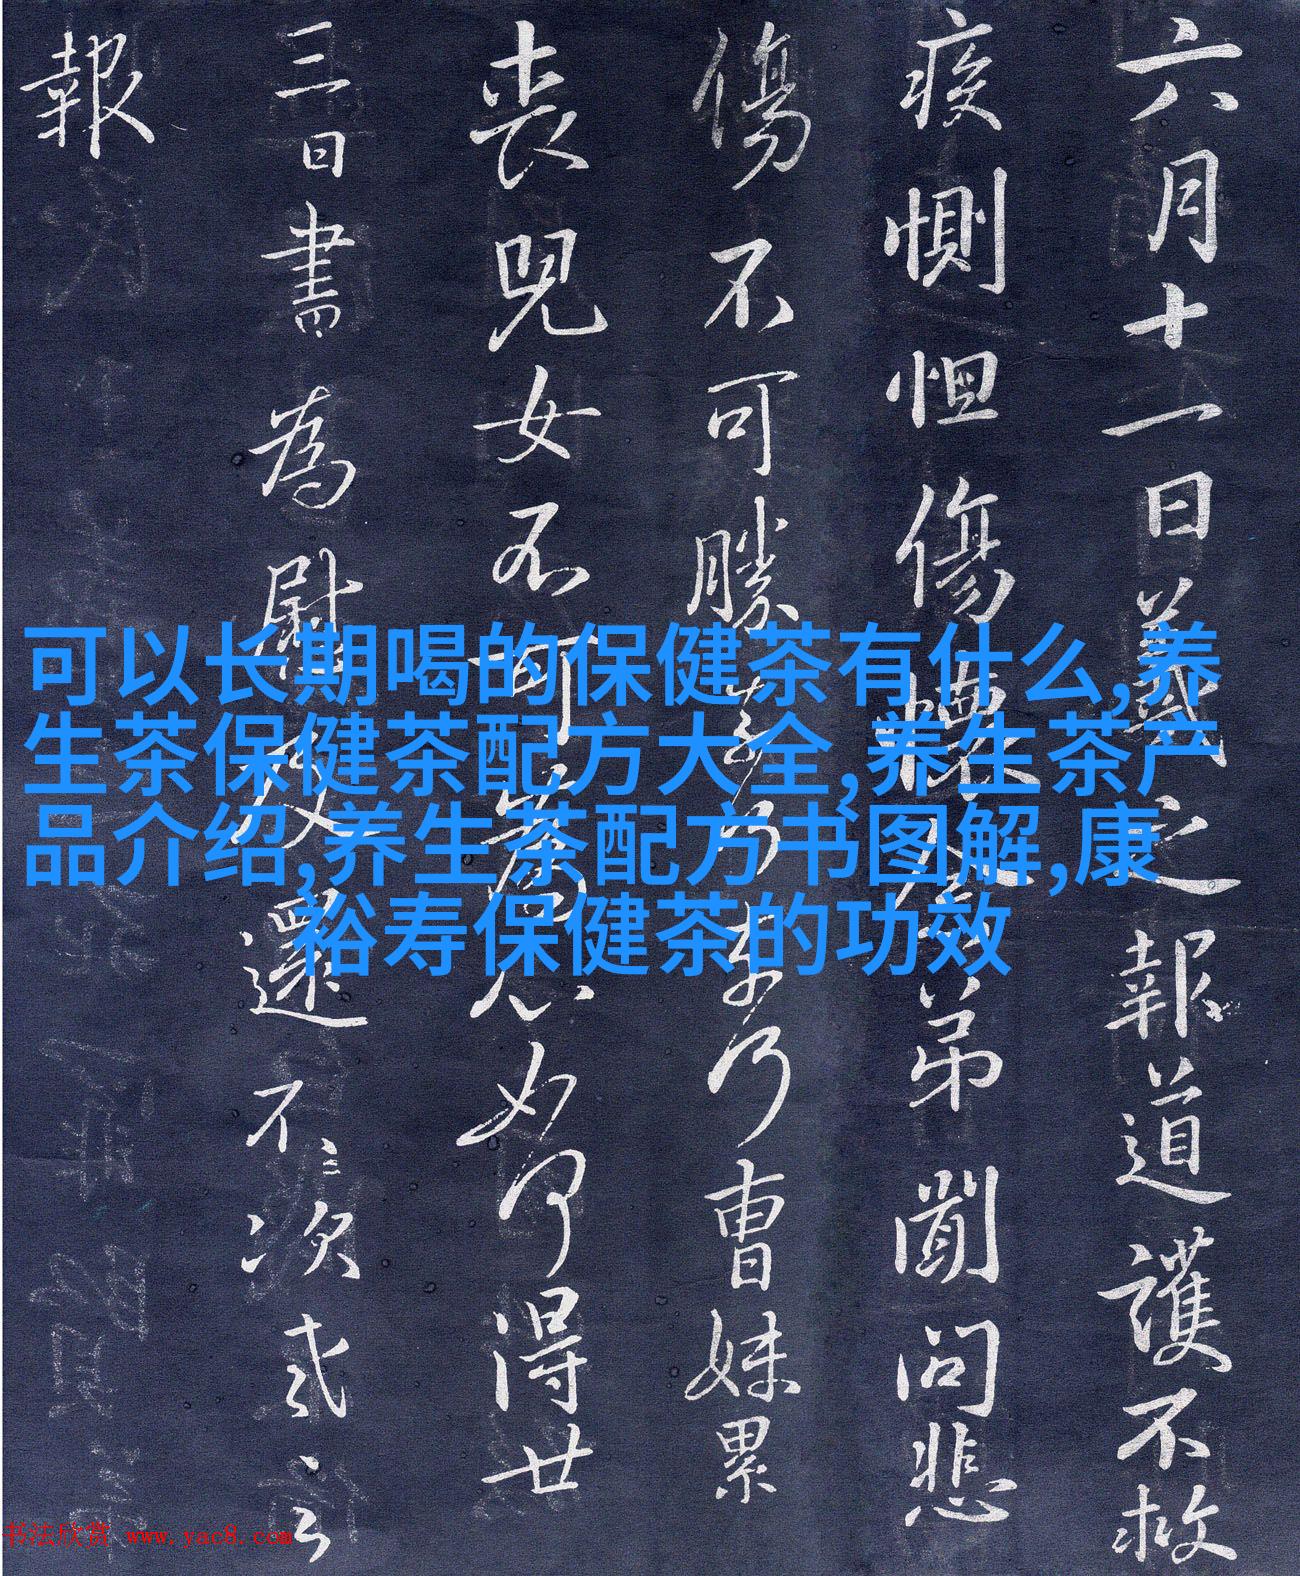 六月十一日羲之報道護不救
疾惻怛傷懷念弟聞問悲
傷不可勝曹妹累
喪兒女不可為心如何得廿
三日書為慰及還不次
報
可以长期喝的保健茶有什么,养
生茶保健茶配方大全,养生茶产
品介绍,养生茶配方书图解,康
裕寿保健茶的功效
书法欣赏 www.yac8.com